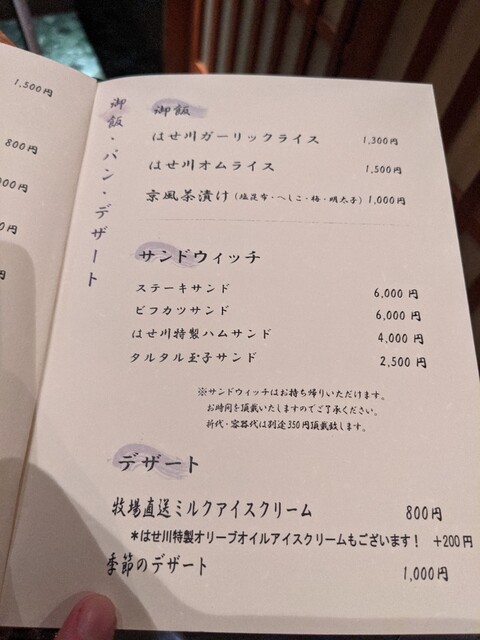 1,500円
800円
000円
0円
円
御飯・パン・デザート
御飯
はせ川ガーリックライス 1,300円
はせ川オムライス 1,500円
京風茶漬け(塩昆布・へしこ・梅・明太子) 1,000円
サンドウィッチ
ステーキサンド 6,000円
ビフカツサンド 6,000円
はせ川特製ハムサンド 4,000円
タルタル玉子サンド 2,500円
※サンドウィッチはお持ち帰りいただけます。
お時間を頂戴いたしますのでご了承ください。
折代・容器代は別途350円頂戴致します。
デザート
牧場直送ミルクアイスクリーム 800円
*はせ川特製オリーブオイルアイスクリームもございます! +200円
季節のデザート 1,000円